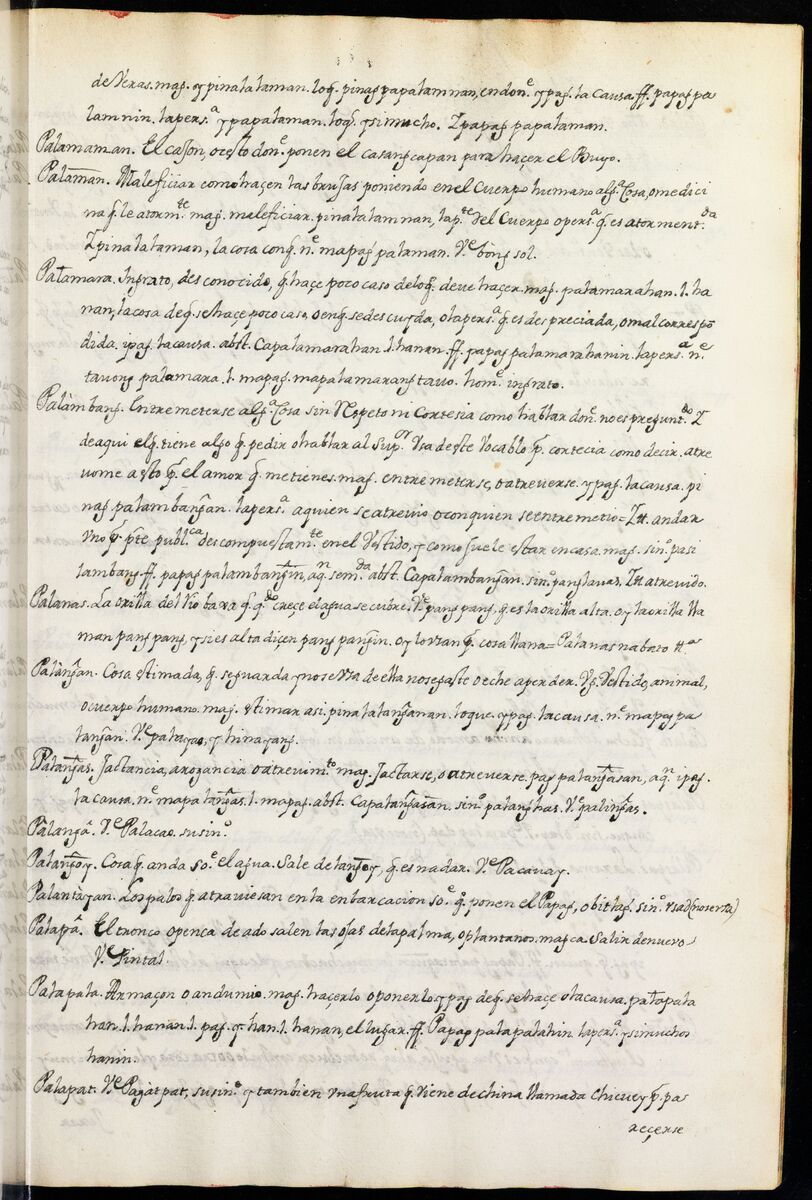 de Veras. mag. y pinalalaman. loq. pinag papalamnan, en don.e y pag. la causa. ff. papag pa
lamnin. lapers.a y papalaman. loq. y si mucho. I papag papalaman.
Palamaman. El cajon, o cesto don.e ponen el casangcapan para haçer el Buyo.
Palaman. Maleficiar como haçen las brujas poniendo en el Cuerpo humano alg.a Cosa, o medici
na q. le atorm.te mag. maleficiar. pinalalamnan, la p.te del Cuerpo o pers.a q. es atorment.da
I pinalalaman, la cosa con q. n.e mapag palaman. V.e bong sol.
Palamara. Ingrato, desconocido, q. haçe poco caso de lo q. deve haçer. mag. palamarahan. l. ha
nan, la cosa de q. se haçe poco caso, o en q. se descuyda, o la pers.a q. es despreciada, o mal correspō
dida. ipag. la causa. abst. Capalamarahan. l. hanan. ff. papag palamarahanin. la pers.a n.e
tavong palamara. l. mapag. mapalamarang tavo. hom.e ingrato.
Palàmbang. Entremeterse alg.a Cosa sin Respeto ni Cortesia como hablar don.e no es pregunt.do I
de aqui el q. tiene algo q. pedir o hablar al Sup.or Usa de este Vocablo p.r cortecia como decir. atre
vome a esto p.r el amor q. me tienes. mag. entremeterse, o atreverse. y pag. la causa. pi
nag palambangan. la pers.a a quien se atrevio o con quien se entremetio = Itt. andar
vno p.r p.te publ.ca descompuestam.te en el Vestido, y como suele estar en casa. mag. sin.o pasi
lambang. ff. papag palambangin, aq.n sem.da abst. Capalambangan. sin.o panglavas, Itt. atrevido.
Palanas. La orilla del Rio baxa q. q.do creçe el agua se cubre. V.e pang pang, q. es la orilla alta. o y la orilla lla
man pang pang, y si es alta diçen pang pangin. o y lo usan p.r cosa llana = Palanas na bato tt.a
Palàngan. Cosa estimada, q. se guarda y no se Usa de ella no se gaste o eche a perder. Vg. Vestido, animal,
o cuerpo humano. mag. estimar asi. pinalalanganan. lo que. y pag. la causa. n.e mapag pa
langan. V.e palayao, y hinayang.
Palangas. Jactancia, arogancia o atrevim.to mag. Jactarse, o atreverse. pag palangasan, aq.n ipag.
la causa. n.e mapalangas. l. mapag. abst. Capalangasan. sin.o palanghas. V.e palingas.
Palangà. V.e Palacao. su sin.o
Palangoy. Cosa q. anda so.e el agua. Sale de langoy, q. es nadar. V.e Pacauay.
Palantàyan. Los palos q. atraviesan en la enbarcacion so.e q. ponen el Papag, o bitlag. sin.o usad (no se usa)
Palapà. El tronco o penca de ado salen las ojas de la palma, o plantanos. mag ca. Salir de nuevo
V.e Sintal.
Palapala. Armaçon o andamio. mag. haçerlo o ponerlo y pag de q. se haçe o la causa. palapala
han. l. hanan. l. pag. y han. l. hanan, el lugar. ff. Papag palapalahin. la pers.a y si muchos
hanin.
Palapat. V.e Pagàt pat, su sin.o y tambien una fruta q. Viene de china llamada Chicuey p.r pa
reçerse